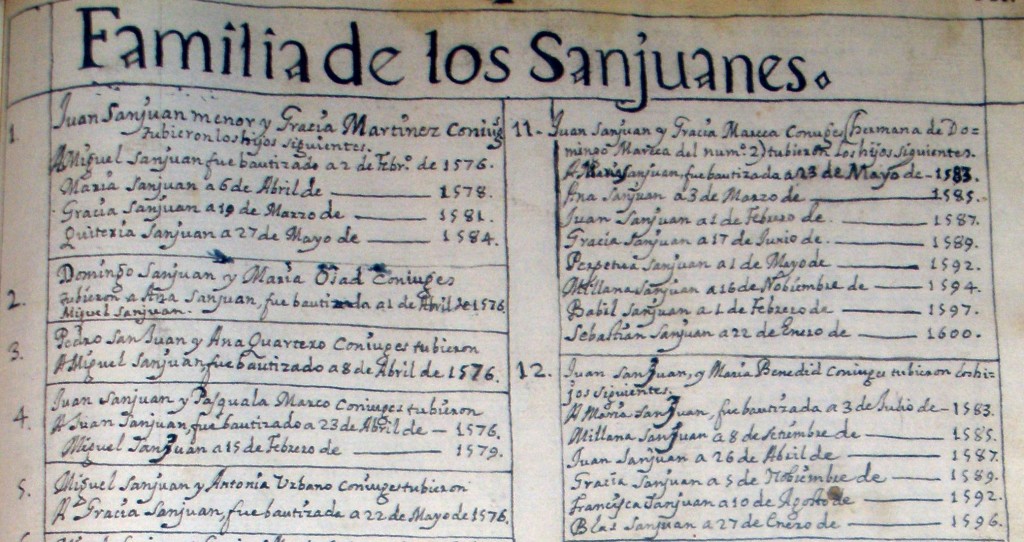 Familia de los Sanjuanes.
1. Juan Sanjuan menor y Gracia Martinez Coniug
tubieron los hijos siguientes.
A Miguel Sanjuan fue bautizado a 2 de Febr.o de 1576.
Maria Sanjuan a 6 de Abril de 1578.
Gracia Sanjuan a 19 de Marzo de 1581.
Quiteria Sanjuan a 27 de Mayo de 1584.
2. Domingo Sanjuan y Maria Coniuges
tubieron a Ana Sanjuan, fue bautizada a 1 de Abril de 1576
Miguel Sanjuan.
3. Pedro San Juan y Ana Quartero Coniuges tubieron
A Miguel Sanjuan, fue bautizado a 8 de Abril de 1576.
4. Juan Sanjuan y Pasquala Marco Coniuges tubieron
A Juan Sanjuan, fue bautizado a 23 de Abril de 1576.
Miguel SanJuan a 15 de Febrero de 1579.
5. Miguel Sanjuan y Antonia Urbano Coniuges tubieron
A Gracia Sanjuan, fue bautizada a 22 de Mayo de 1576.
11. Juan Sanjuan y Gracia Mareca Conuges (hermana de Do-
mingo Mareca del num.o 2) tubieron los hijos siguientes.
A Maria Sanjuan, fue bautizada a 23 de Mayo de 1583.
Ana Sanjuan a 3 de Marzo de 1585.
Juan Sanjuan a 1 de Febrero de 1587.
Gracia Sanjuan a 17 de Junio de 1589.
Perpetua Sanjuan a 1 de Mayo de 1592.
Millana Sanjuan a 16 de Nobiembre de 1594.
Babil Sanjuan a 1 de Febrero de 1597.
Sebastian Sanjuan a 22 de Enero de 1600.
12. Juan SanJuan, y Maria Benedid Coniuges tubieron los hi-
jos siguientes.
A Maria SanJuan, fue bautizada a 3 de Julio de 1583.
Millana SanJuan a 8 de setiembre de 1585.
Juan Sanjuan a 26 de Abril de 1587.
Gracia Sanjuan a 5 de Nobiembre de 1589.
Francisca Sanjuan a 10 de Agosto de 1592.
Blas Sanjuan a 27 de Enero de 1596.